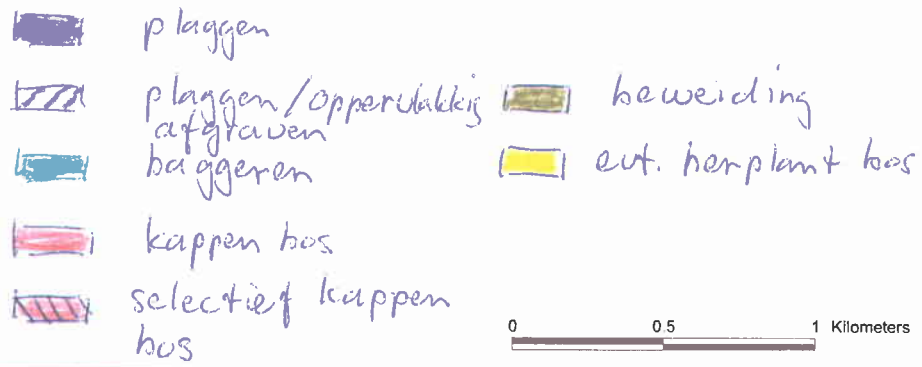 plaggen
plaggen/oppervlakkig
afgraven
baggeren
kappen bos
selectief kappen
bos
beweiding
evt. herplant bos
0 0.5 1 Kilometers